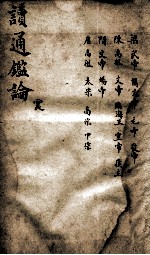 梁武帝 簡文帝 元帝 敬帝
陳高祖 文帝 臨海王 宣帝 後主
隋文帝 煬帝
唐高祖 太宗 高宗 中宗
震
讀通鑑論